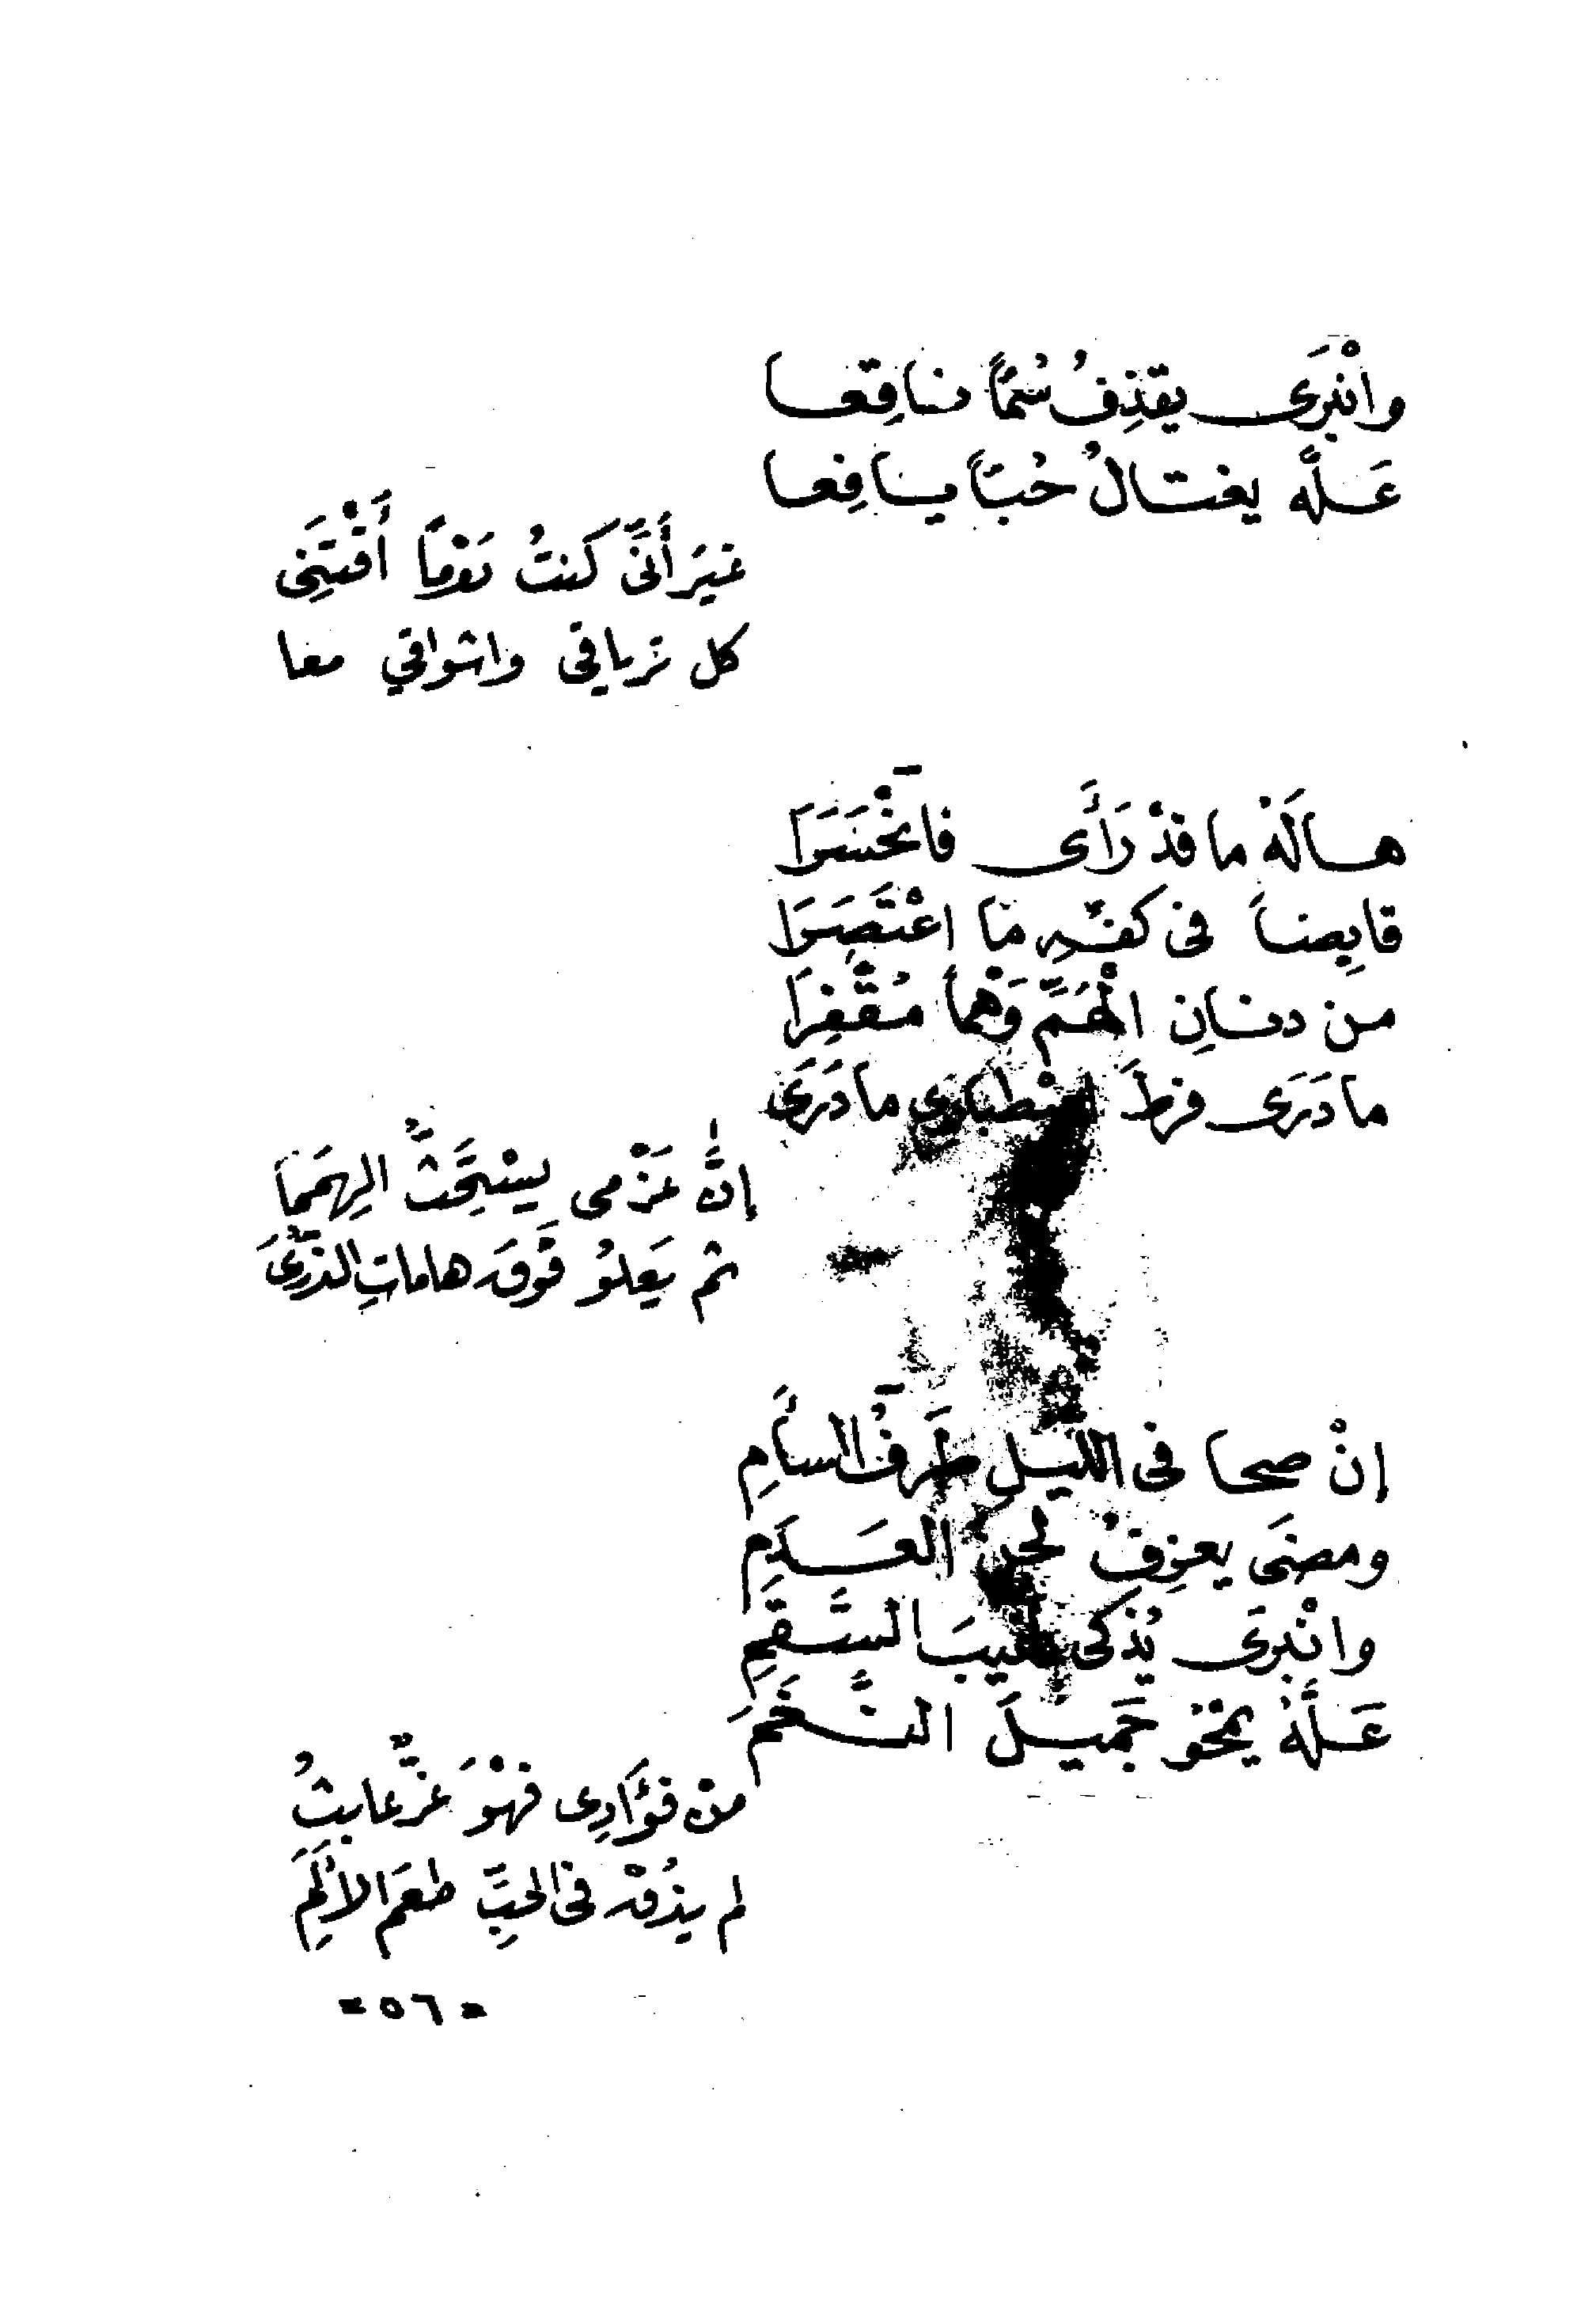 وانْبَرَى يقذِفُ سُمّاً ناقِعا
عَلَّه يغتالُ حُبّاً يافِعا
غيرَ أَنِّى كنتُ يَوْماً أَقْتَنِى
كل ترياقي واشواقي معا
هالَهُ ما قدْ رَأَى فانْحَسَرَا
قابِضاً فى كفِّهِ مَا اعْتَصَرَا
من دنانِ الْهَمِّ وَهْماً مُقْفِرَا
مادَرَى فرطَ اصْطبارِى مادَرَى
إنَّ عَزْمى يسْتَحِثُّ الهِمَمِا
ثم يَعلوُ فَوْقَ هاماتِ الذُّرَى
إنْ صحا فى الليل طَرفُ السأَمِ
ومضَى يعزِفُ لحن العَدَمِ
وانْبرَى يُذكى لهيبَ السَّقَمِ
عَلَّهُ يمْحُو جَميلَ النَّغَمِ
منْ فؤَادِى فهْوَ غِرٌّ عابثُ
لم يذُقْ فى الحبِّ طعمَ الأَلَمِ
- ٥٦ -